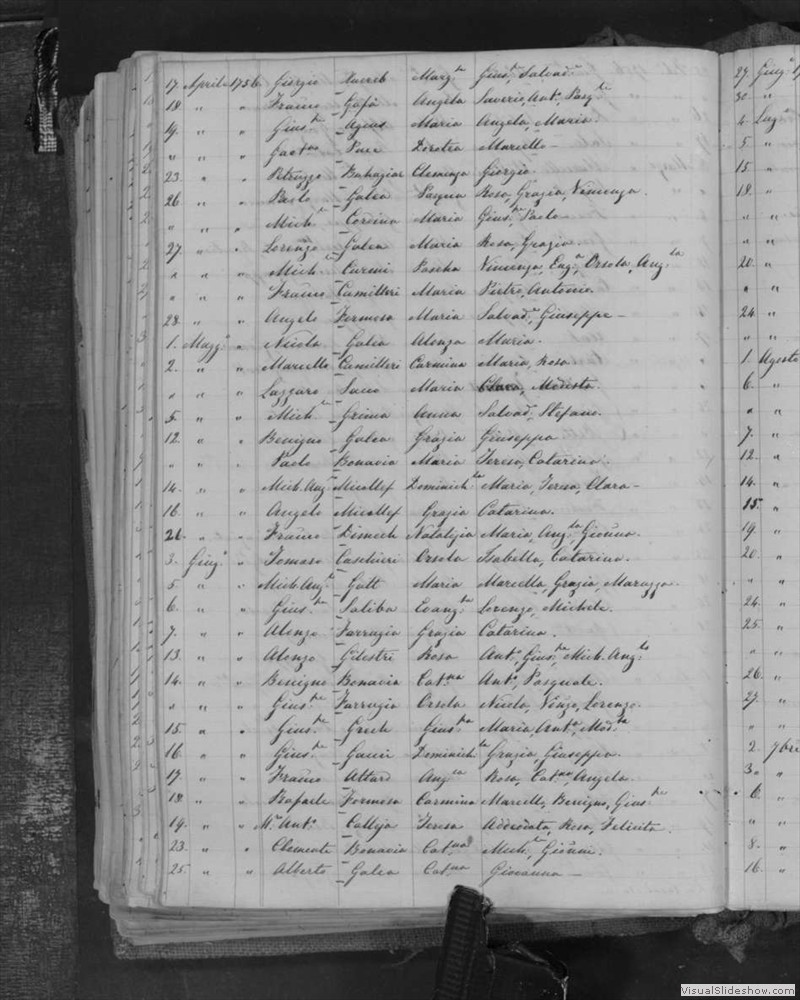 17. April 1756. Giorgio Xuereb Marg.ta Gius.e, Salvad.e
18. " " Franco Gafà Angela Saverio, Ant.o, Pasq.le
19. " " Gius.e Agius Maria Angela, Maria.
" " " Gaet.no Pace Dorotea Marcello
23. " " Petruzzo Buhagiar Clemenza Giorgio
26. " " Paolo Galea Pasqua Rosa, Grazia, Vincenza.
" " " Mich.le Cordina Maria Gius.e, Paolo
27. " " Lorenzo Galea Maria Rosa, Grazia.
" " " Mich.le Curmi Pascha Vincenzo, Eug.a, Orsola, Ang.la
" " " Franco Camilleri Maria Pietro, Antonio.
28. " " Angelo Formosa Maria Salvad.e, Giuseppe
1. Magg.o " Nicola Galea Alonza Maria.
2. " " Marcello Camilleri Carmina Maria, Rosa.
" " " Lazzaro Maria Clara, Modesta.
5. " " Mich.le Grima Anna Salvad.e, Stefano.
12. " " Benigno Galea Grazia Giuseppa
" " " Paolo Bonavia Maria Teresa, Catarina.
14. " " Mich.Ang.o Micallef Dominich.la Maria, Teresa, Clara
16. " " Angelo Micallef Grazia Catarina.
26. " " Franco Dimech Natalizia Maria, Ang.la, Gio'nna.
3. Giug.o " Tomaso Orsola Isabella, Catarina.
5. " " Mich.Ang.o Gatt Maria Marcella, Grazia, Maruzza.
6. " " Gius.e Saliba Evang.ta Lorenzo, Michele.
7. " " Alonzo Farrugia Grazia Catarina.
13. " " Alonzo Gilestri Rosa Ant.o, Gius.e, Mich. Ang.lo
14. " " Benigno Bonavia Cat.na Ant.o, Pasquale.
" " " Gius.e Farrugia Orsola Nicola, Vinzo, Lorenzo.
15. " " Gius.e Grech Gius.a Maria, Ant.a, Mod.ta
16. " " Gius.e Gauci Dominich.la Grazia, Giuseppa.
17. " " Franco Attard Ang.la Rosa, Cat.na Angela.
18. " " Rafaele Formosa Carmina Marcello, Benigno, Gius.e
19. " " M.o Ant.o Calleja Teresa Adeodata, Rosa, Felicita.
23. " " Clemente Bonavia Cat.na Mich.le, Gio'nni.
25. " " Alberto Galea Cat.na Giovanna
29. Giug.o
30. "
4. Lug.o
5. "
15. "
18. "
" "
" "
20. "
" "
24. "
" "
1. Agosto
6. "
" "
7. "
12. "
14. "
15. "
19. "
20. "
" "
24. "
25. "
" "
26. "
27. "
" "
2. 7bre
3. "
6. "
" "
8. "
16. "
VisualSlideshow.com